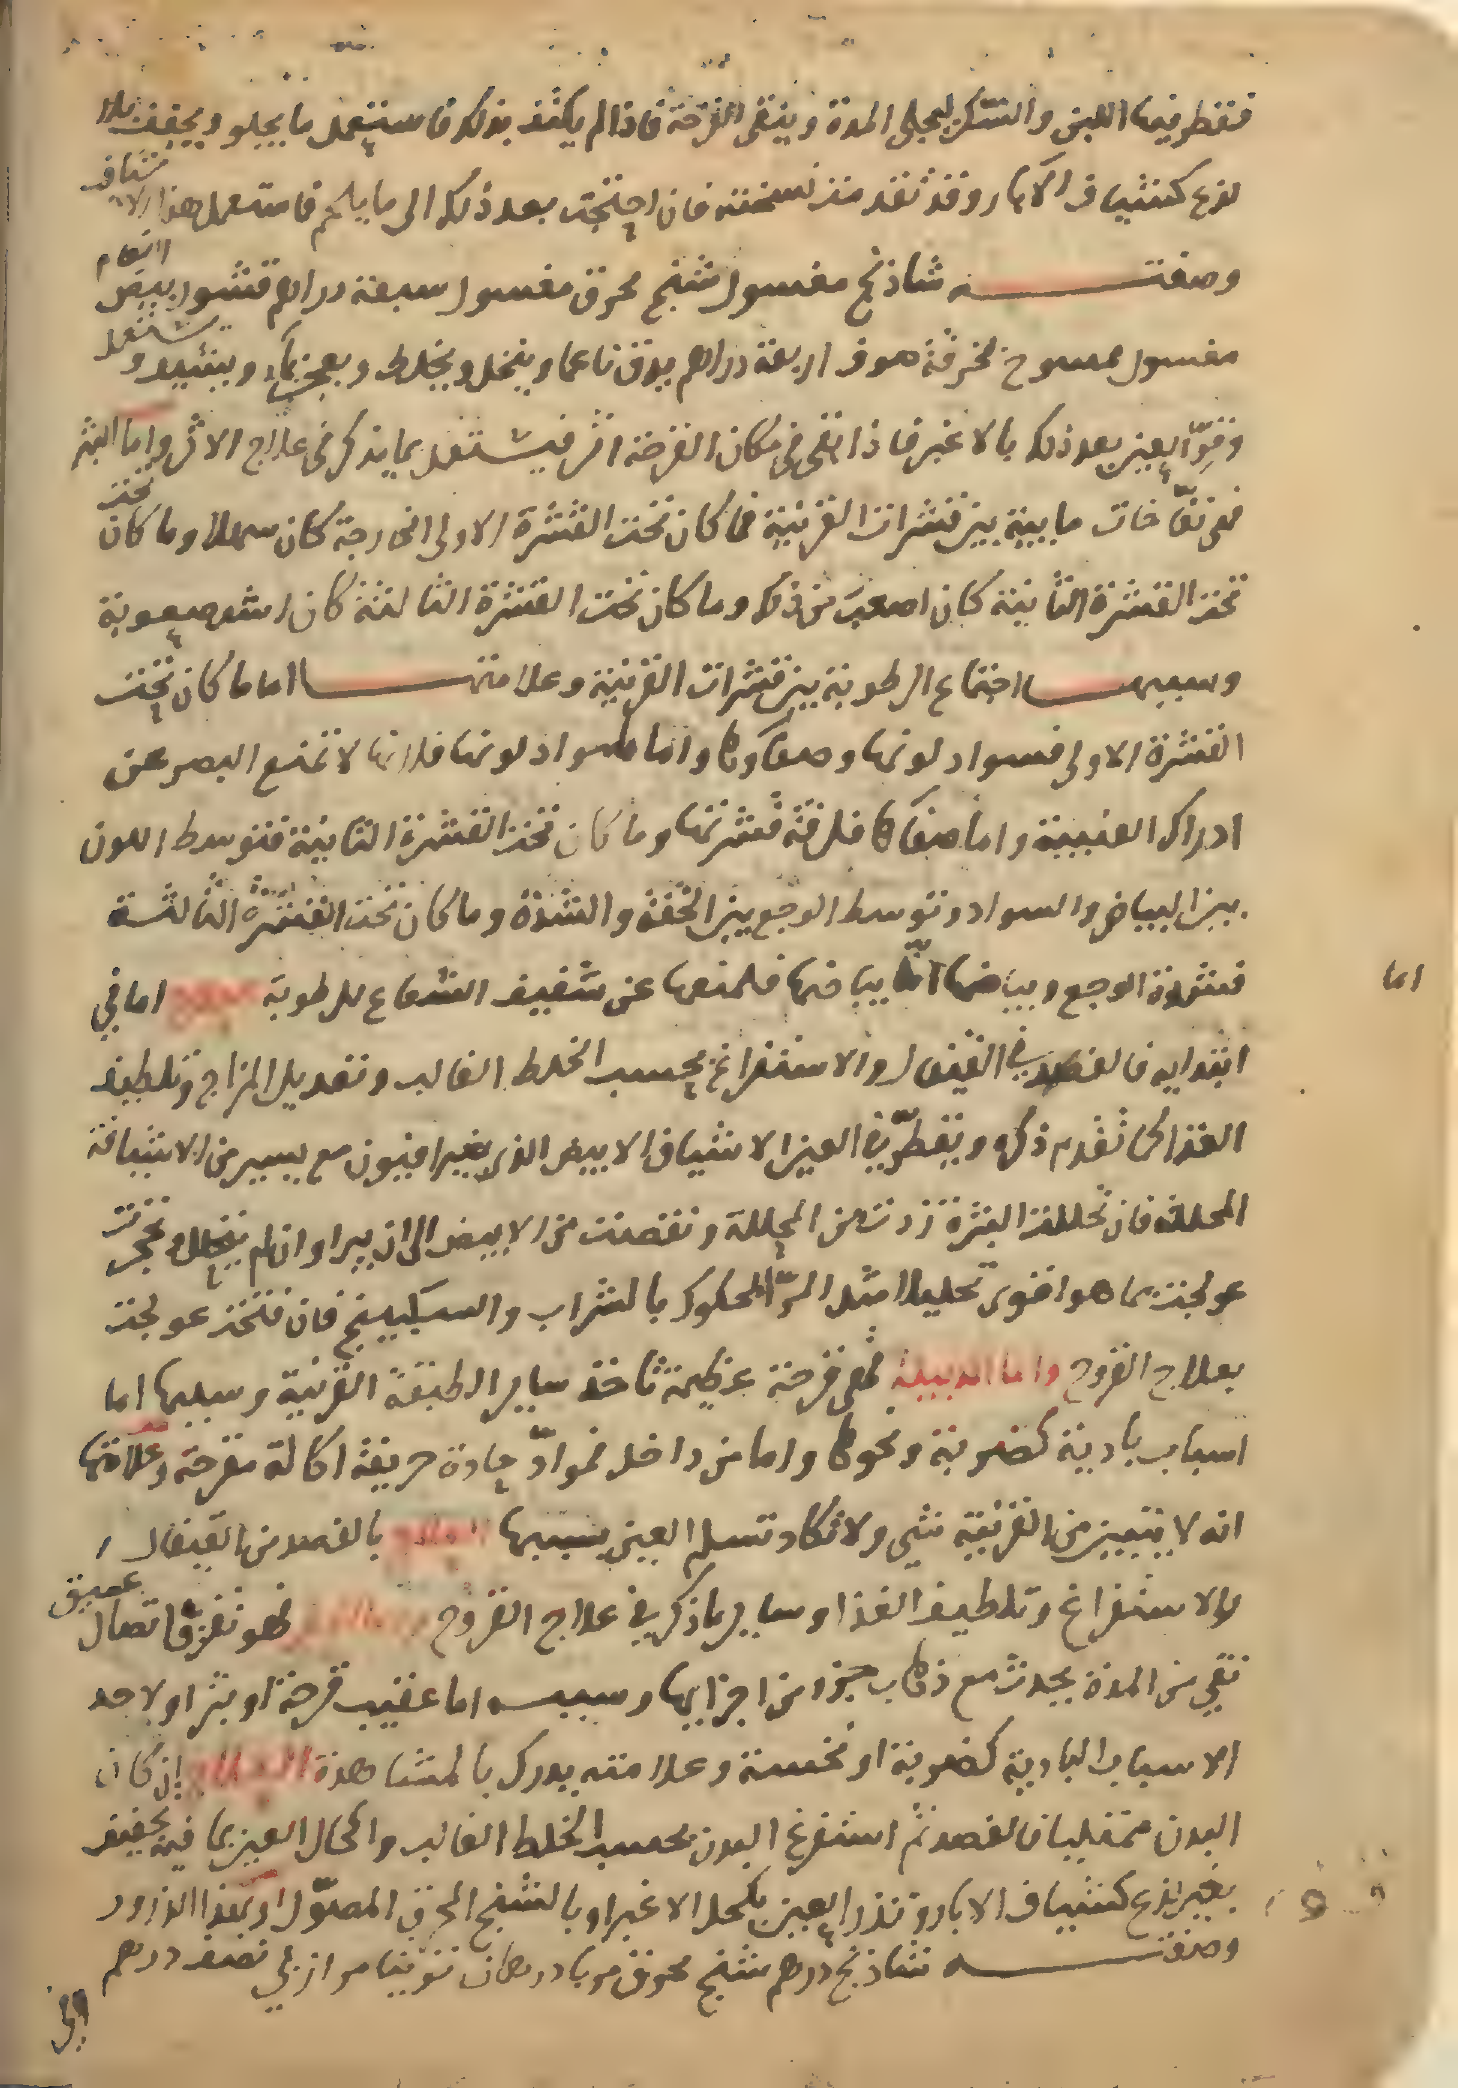 فتقطر فيها اللبن والسكر ليجلي المدة وينقي القرحة فاذا لم يكتف بذلك فاستعمل ما يجلو ويجفف بلا
لذع كشياف الابار وقد تقدمت نسخته فان احتجت بعد ذلك الى ما يلحم فاستعمل هذا الاشياف
وصفته شاذنج مغسول شنج محرق مغسول سبعة دراهم قشور بيض النعام
مغسول ممسوح بخرقة صوف اربعة دراهم يدق ناعما وينخل ويخلط ويعجن بماء ويشيف ويستعمل
وقوّ العين بعد ذلك بالاغبر فاذا بقى في مكان القرحة اثر فيستعمل بما يذكر في علاج الاثر واما البثر
فهي نفّاخات مابية بين قشرات القرنية فما كان تحت القشرة الاولى الخارجة كان سهلا وما كان تحت
تحت القشرة الثانية كان اصعب من ذلك وما كان تحت القشرة الثالثة كان اشد صعوبة
وسببها اجتماع الرطوبة بين قشرات القرنية وعلامتها اما ما كان تحت
القشرة الاولى فسواد لونها وصفاوها واما سواد لونها فلانها لا تمنع البصر عن
ادراك العنبية واما صفاها فلرقة قشرتها وما كان تحت القشرة الثانية فتوسط اللون
بين البياض والسواد وتوسط الوجع بين الخفة والشدة وما كان تحت القشرة الثالثة
فشدة الوجع وبياضها امّا بياضها فلمنعها عن شفيف الشعاع للرطوبة العلاج اما في
اما
ابتدايه فالفصد في القيفال والاستفراغ بحسب الخلط الغالب وتعديل المزاج وتلطيف
الغذا كما تقدم ذكره ويقطّر في العين الاشياف الابيض الذي بغير افيون مع يسير من الاشيافة
المحللة فان تحللت البثرة زدت من المحللة ونقصت من الابيض الى ان يبرا وان لم يتحلل وتحجرت
عولجت بما هو اقوى تحليلا مثل المرّ المحكوك بالشراب والسكبينج فان فتحت عولجت
بعلاج القروح واما الدبيلة فهي قرحة عظيمة تاخذ ساير الطبقة القرنية وسببها اما
اسباب بادية كضربة ونحوها واما من داخل فموادّ حادة حريفة اكالة مقرحة وعلامتها
انه لا يتبين من القرنية شي ولا تكاد تسلم العين بسببها العلاج بالفصد من القيفال
والاستفراغ وتلطيف الغذا وساير ما ذكر في علاج القروح فهو تفرّق اتصال عميق
نقي من المدة يحدث مع ذهاب جزا من اجزايها وسببه اما عقيب قرحة او بثر او لاحد
الاسباب البادية كضربة او نخسة وعلامته يدرك بالمشاهدة العلاج إن كان
البدن ممتليا فالفصد ثم استفرغ البدن بحسب الخلط الغالب واكحال العين بما فيه تجفيف
بغير لذع كشياف الابار وتذر العين بكحل الاغبر او بالشنج المحرق المصوّل او بهذا الذرور
وصفته شاذنج درهم شنج محرق مربا درهمان توتيا مرازبي نصف درهم